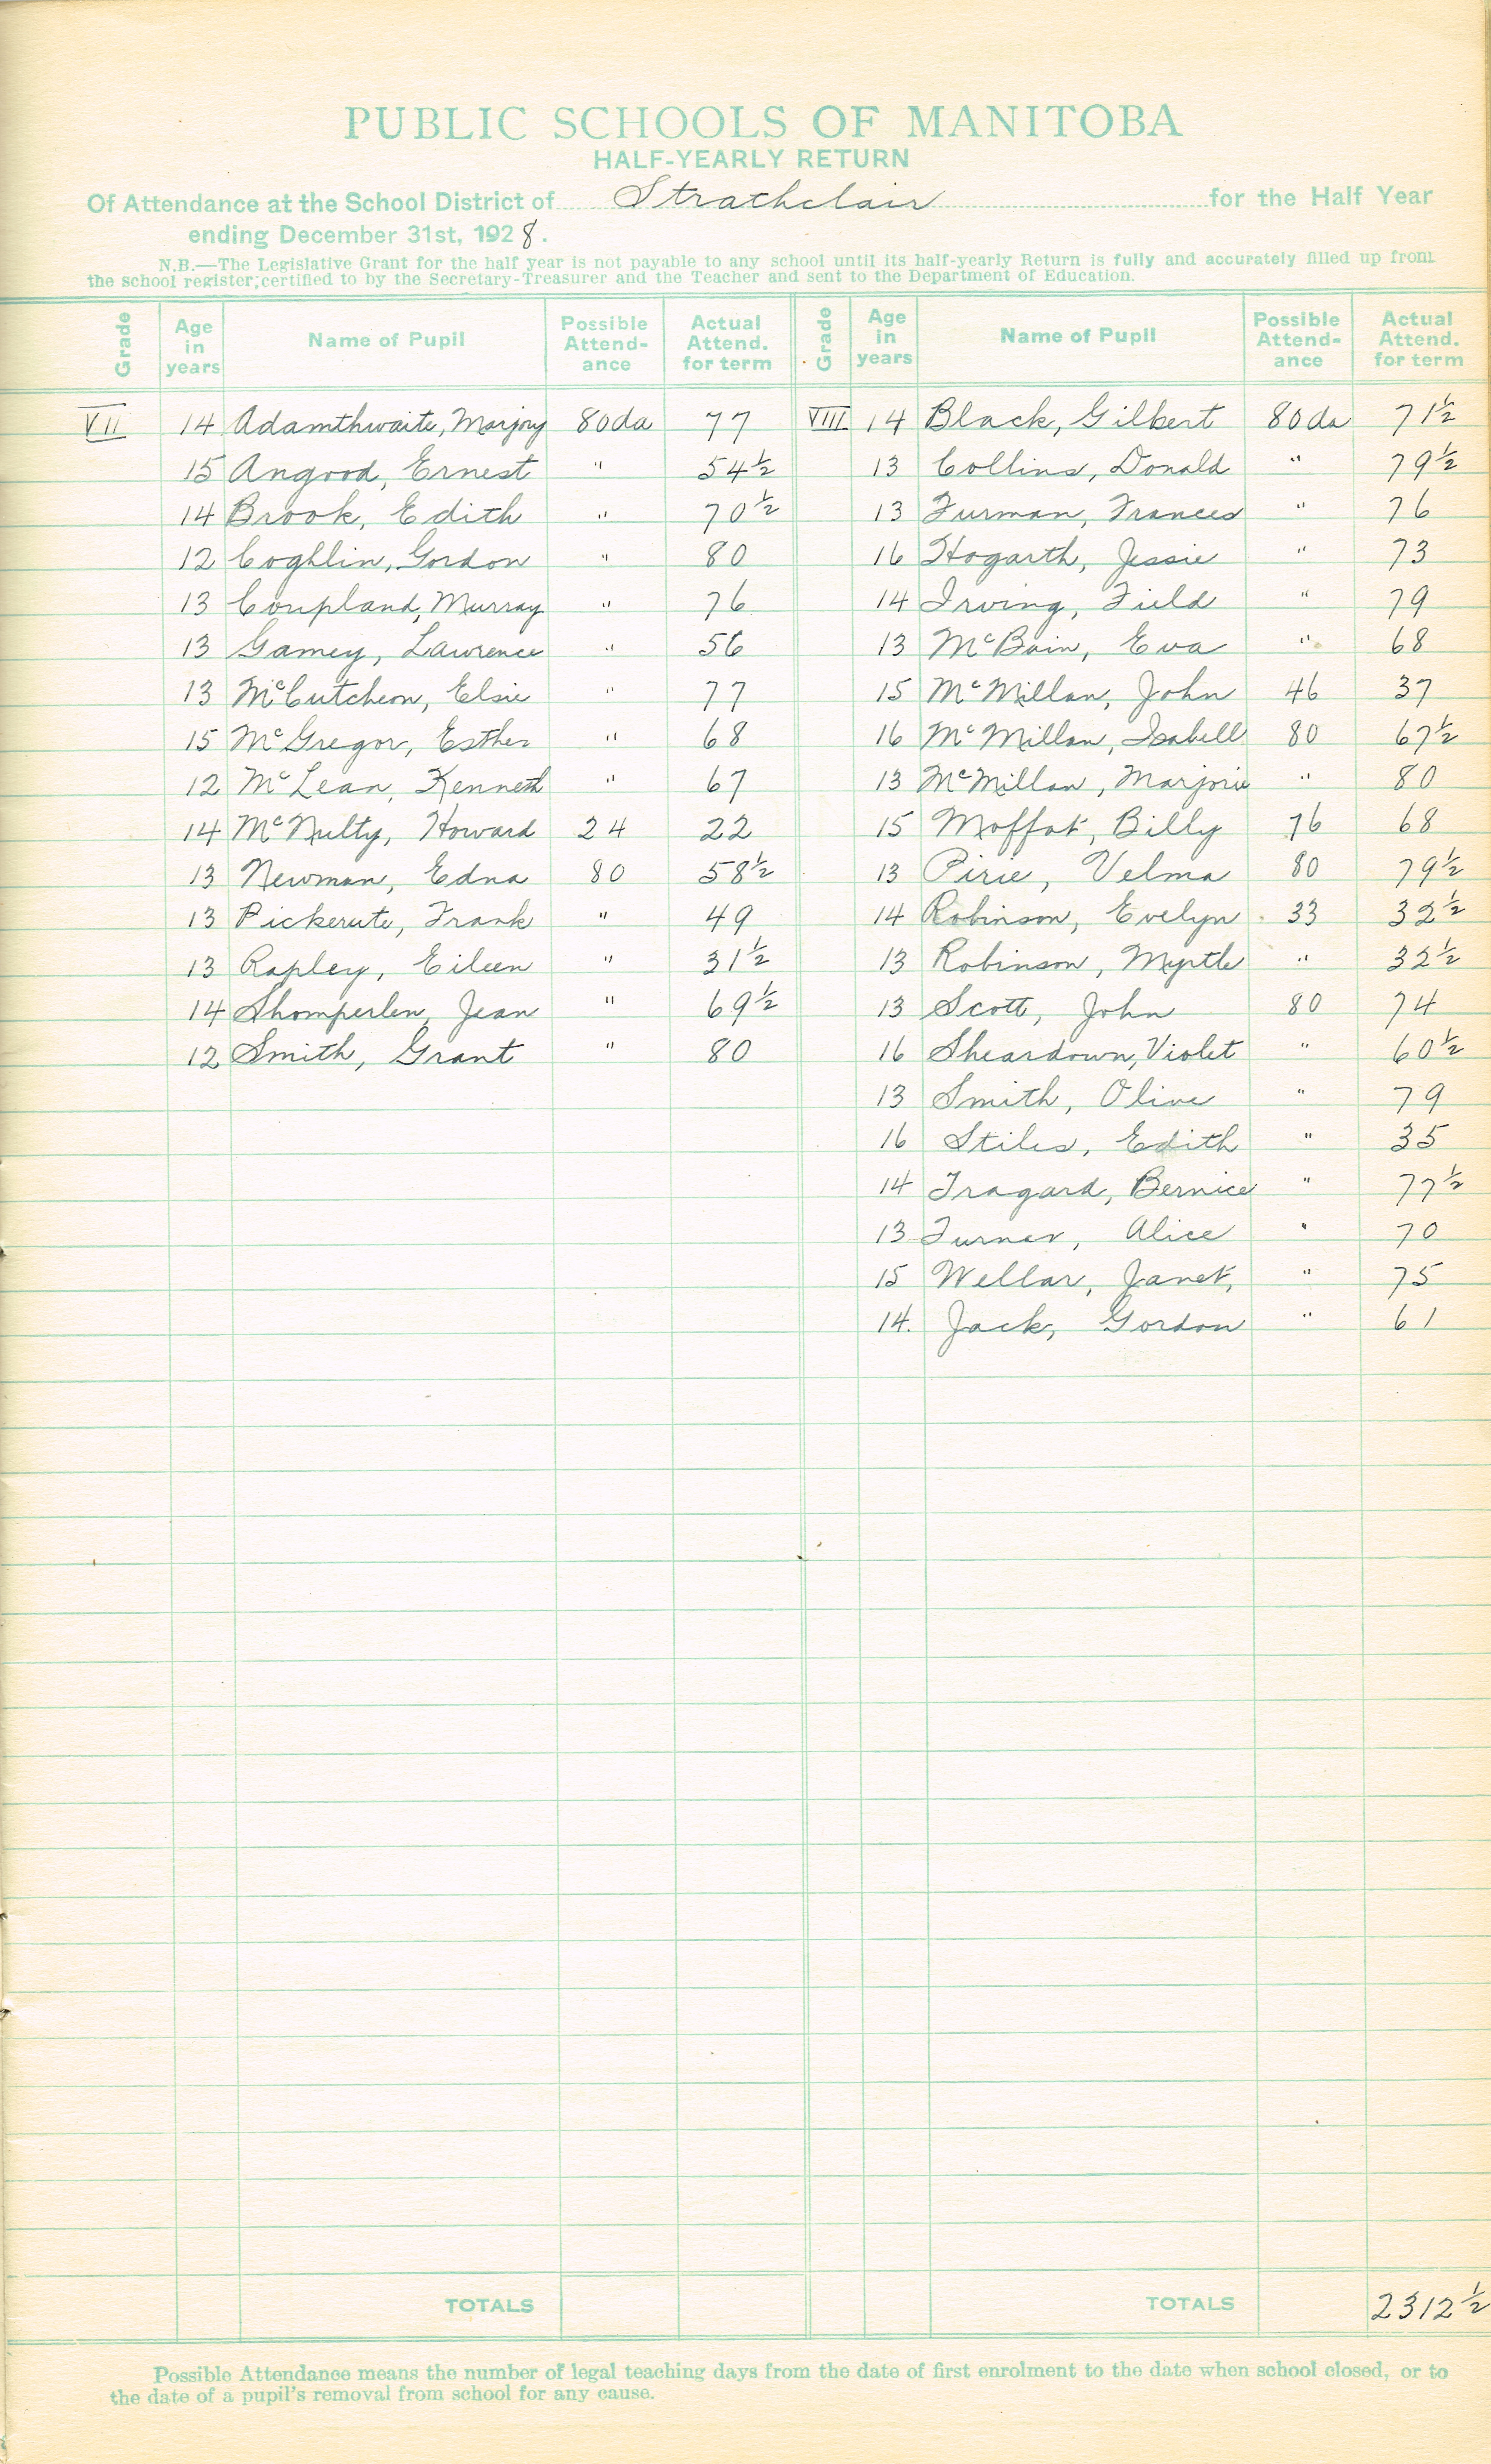 PUBLIC SCHOOLS OF MANITOBA
HALF-YEARLY RETURN
Of Attendance at the School District of Strathclair for the Half Year
ending December 31st, 1928.
N.B.—The Legislative Grant for the half year is not payable to any school until its half-yearly Return is fully and accurately filled up from
the school register; certified to by the Secretary-Treasurer and the Teacher and sent to the Department of Education.
Grade Age in years Name of Pupil Possible Attend-ance Actual Attend. for term Grade Age in years Name of Pupil Possible Attend-ance Actual Attend. for term
VII 14 Adamthwaite, Marjory 80da 77 VIII 14 Black, Gilbert 80da 71½
15 Angood, Ernest " 54½ 13 Collins, Donald " 79½
14 Brook, Edith " 70½ 13 Furman, Frances " 76
12 Coghlin, Gordon " 80 16 Hogarth, Jessie " 73
13 Coupland, Murray " 76 14 Irving, Field " 79
13 Gamey, Lawrence " 56 13 McBain, Eva " 68
13 McCutcheon, Elsie " 77 15 McMillan, John 46 37
15 McGregor, Esther " 68 16 McMillan, Isabell 80 67½
12 McLean, Kenneth " 67 13 McMillan, Marjorie " 80
14 McNulty, Howard 24 22 15 Moffat, Billy 76 68
13 Newman, Edna 80 58½ 13 Pirie, Velma 80 79½
13 Pickerute, Frank " 49 14 Robinson, Evelyn 33 32½
13 Rapley, Eileen " 31½ 13 Robinson, Myrtle " 32½
14 Shomperlen, Jean " 69½ 13 Scott, John 80 74
12 Smith, Grant " 80 16 Sheardown, Violet " 60½
13 Smith, Olive " 79
16 Stiles, Edith " 35
14 Tragard, Bernice " 77½
13 Turner, Alice " 70
15 Wellar, Janet, " 75
14. Jack, Gordon " 61
TOTALS TOTALS 2312½
Possible Attendance means the number of legal teaching days from the date of first enrolment to the date when school closed, or to
the date of a pupil's removal from school for any cause.